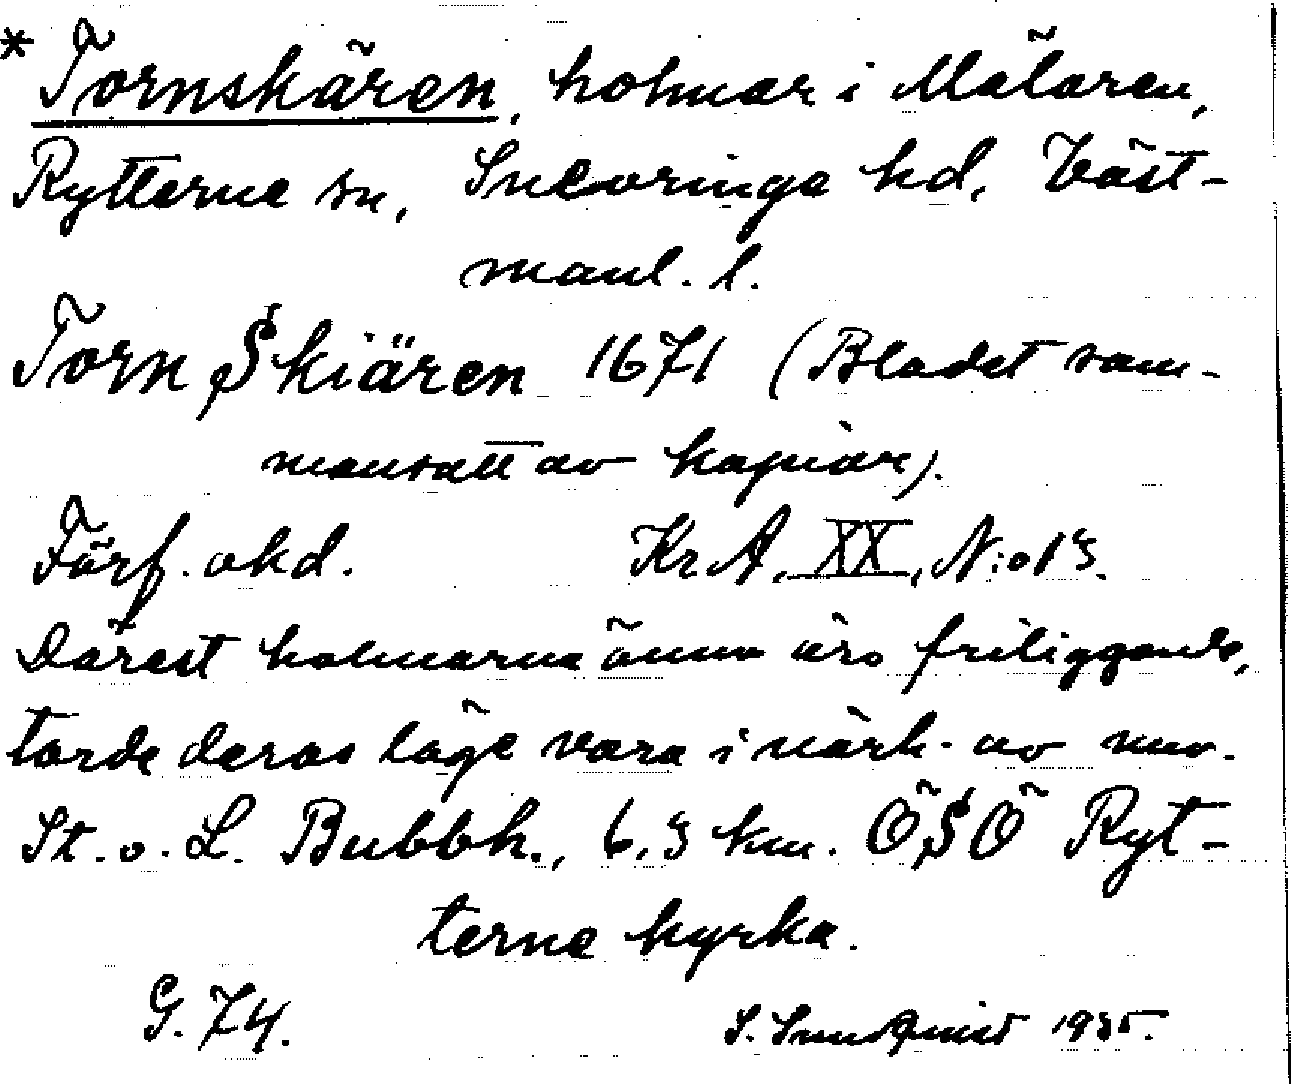 * Tornskären, holmar i Mälaren,
Rytterne sn, Snevringe hd, Väst-
manl. l.
Torn Skiären 1671 (Bladet sam-
mansatt av kopior).
Förf. okd. Kr A, XX, N:o 13.
Därest holmarna ännu äro friliggande,
torde deras läge vara i närh. av nuv.
St. o. L. Bubbh., 6,3 km. ÖSÖ Ryt-
terne kyrka.
G. 74. S. Sundquist 1935.